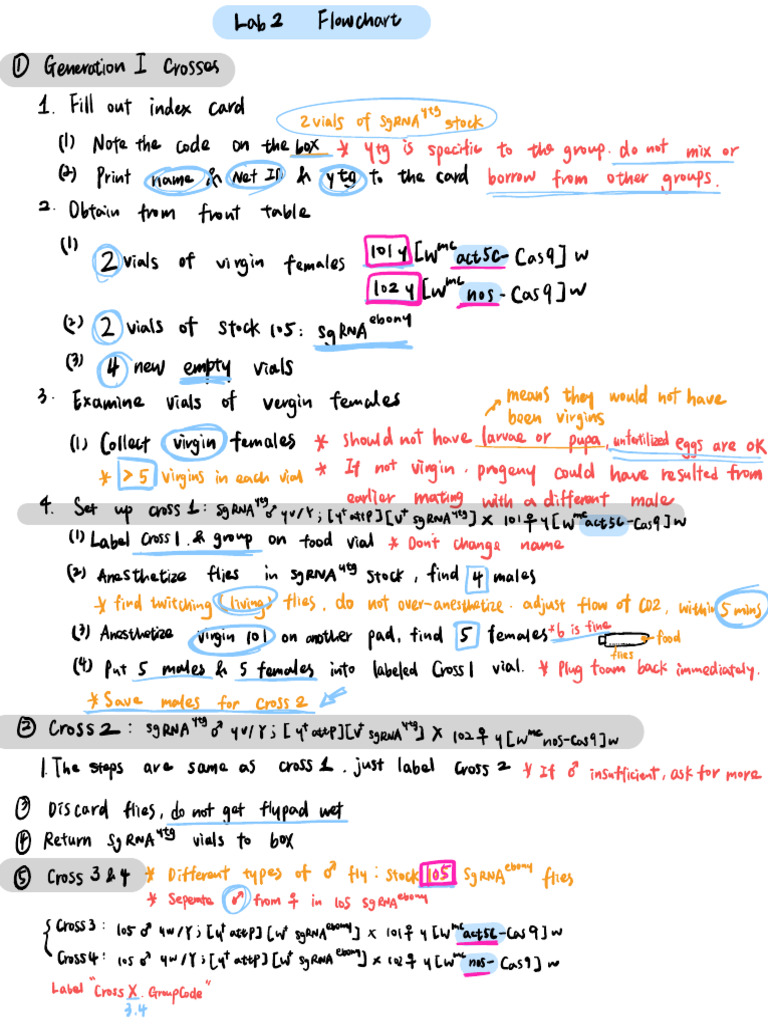 Lab 2 Flowchart
① Generation I Crosses
1. Fill out index card
2 vials of sgRNA^ytg stock
(1) Note the code on the box * ytg is specific to the group. do not mix or
(2) Print name & Net ID & ytg to the card borrow from other groups.
2. Obtain from front table
(1) 2 vials of virgin females 101 y [w^mc act5c-Cas9] w
102 y [w^mc nos-Cas9] w
(2) 2 vials of stock 105: sgRNA^ebony
(3) 4 new empty vials
3. Examine vials of vergin females
means they would not have
been virgins
(1) Collect virgin females * should not have larvae or pupa, unfertilized eggs are OK
* >5 virgins in each vial * If not virgin. progeny could have resulted from
earlier mating with a different male
4. Set up cross 1: sgRNA^ytg ♂ yv/Y; [y⁺attP][v⁺ sgRNA^ytg] X 101 ♀ y[w^mc act5C-Cas9] w
(1) Label Cross 1 & group on food vial * Don't change name
(2) Anesthetize flies in sgRNA^ytg stock, find 4 males
* find twitching (living) flies. do not over-anesthetize. adjust flow of CO2, within 5 mins
(3) Anesthetize virgin 101 on another pad, find 5 females *6 is fine
food
flies
(4) Put 5 males & 5 females into labeled Cross 1 vial. * Plug foam back immediately.
* Save males for cross 2
② Cross 2: sgRNA^ytg ♂ yv/Y; [y⁺attP][v⁺ sgRNA^ytg] X 102 ♀ y[w^mc nos-Cas9] w
1. The steps are same as cross 1. just label Cross 2 * If ♂ insufficient, ask for more
③ Discard flies, do not get flypad wet
④ Return sgRNA^ytg vials to box
⑤ Cross 3 & 4 * Different types of ♂ fly: stock 105 sgRNA^ebony flies
* Seperate ♂ from ♀ in 105 sgRNA^ebony
Cross 3: 105 ♂ yw/Y; [y⁺attP][w⁺ sgRNA^ebony] x 101 ♀ y[w^mc act5C-Cas9] w
Cross 4: 105 ♂ yw/Y; [y⁺attP][w⁺ sgRNA^ebony] x 102 ♀ y[w^mc nos-Cas9] w
Label "Cross X. GroupCode"
3.4